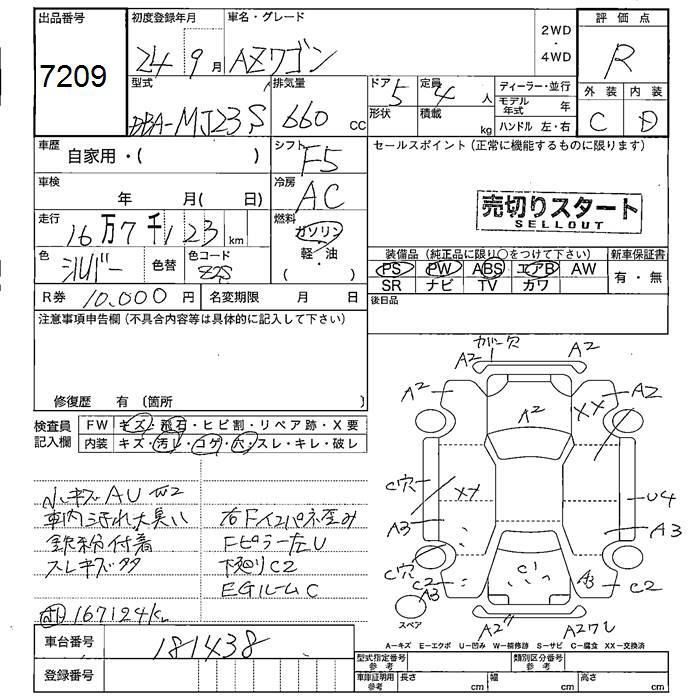 出品番号
7209
初度登録年月
24 9月
車名・グレード
AZワゴン
2WD
・
4WD
評価点
R
型式
DBA-MJ23S
排気量
660 cc
ドア 5
形状
定員 4 人
積載 kg
ディーラー・並行
モデル年式 年
ハンドル 左・右
外装 内装
C D
車歴
自家用・( )
シフト
F5
セールスポイント(正常に機能するものに限ります)
車検
年 月( 日)
冷房
AC
売切りスタート
SELLOUT
走行
16万7千123km
燃料
ガソリン
軽・油
色
シルバー
色替
色コード
Z2S
装備品(純正品に限り○をつけて下さい)
新車保証書
PS PW ABS エアB AW
SR ナビ TV カワ
有・無
R券 10,000円
名変期限 月 日
後日品
注意事項申告欄(不具合内容等は具体的に記入して下さい)
修復歴 有(箇所 )
検査員
記入欄
FW キズ・飛石・ヒビ割・リペア跡・X要
内装 キズ・汚レ・コゲ・穴・スレ・キレ・破レ
小キズAU W2
車内汚れ大臭い
右FインパネK歪み
鉄粉付着
Fピラー左U
スレキズ多
下廻りC2
EGルームC
167124km
車台番号
181438
登録番号
ガバー欠
A2
A2
A2
A2
XX
A2
C穴
XX
U4
A3
A3
C穴
C2
A3
C1
A3
C2
スペア
A2
A2ワレ
A-キズ E-エクボ U-凹み W-補修跡 S-サビ C-腐食 XX-交換済
型式指定番号
参考
類別区分番号
参考
車庫証明用
参考
長さ cm
幅 cm
高さ cm